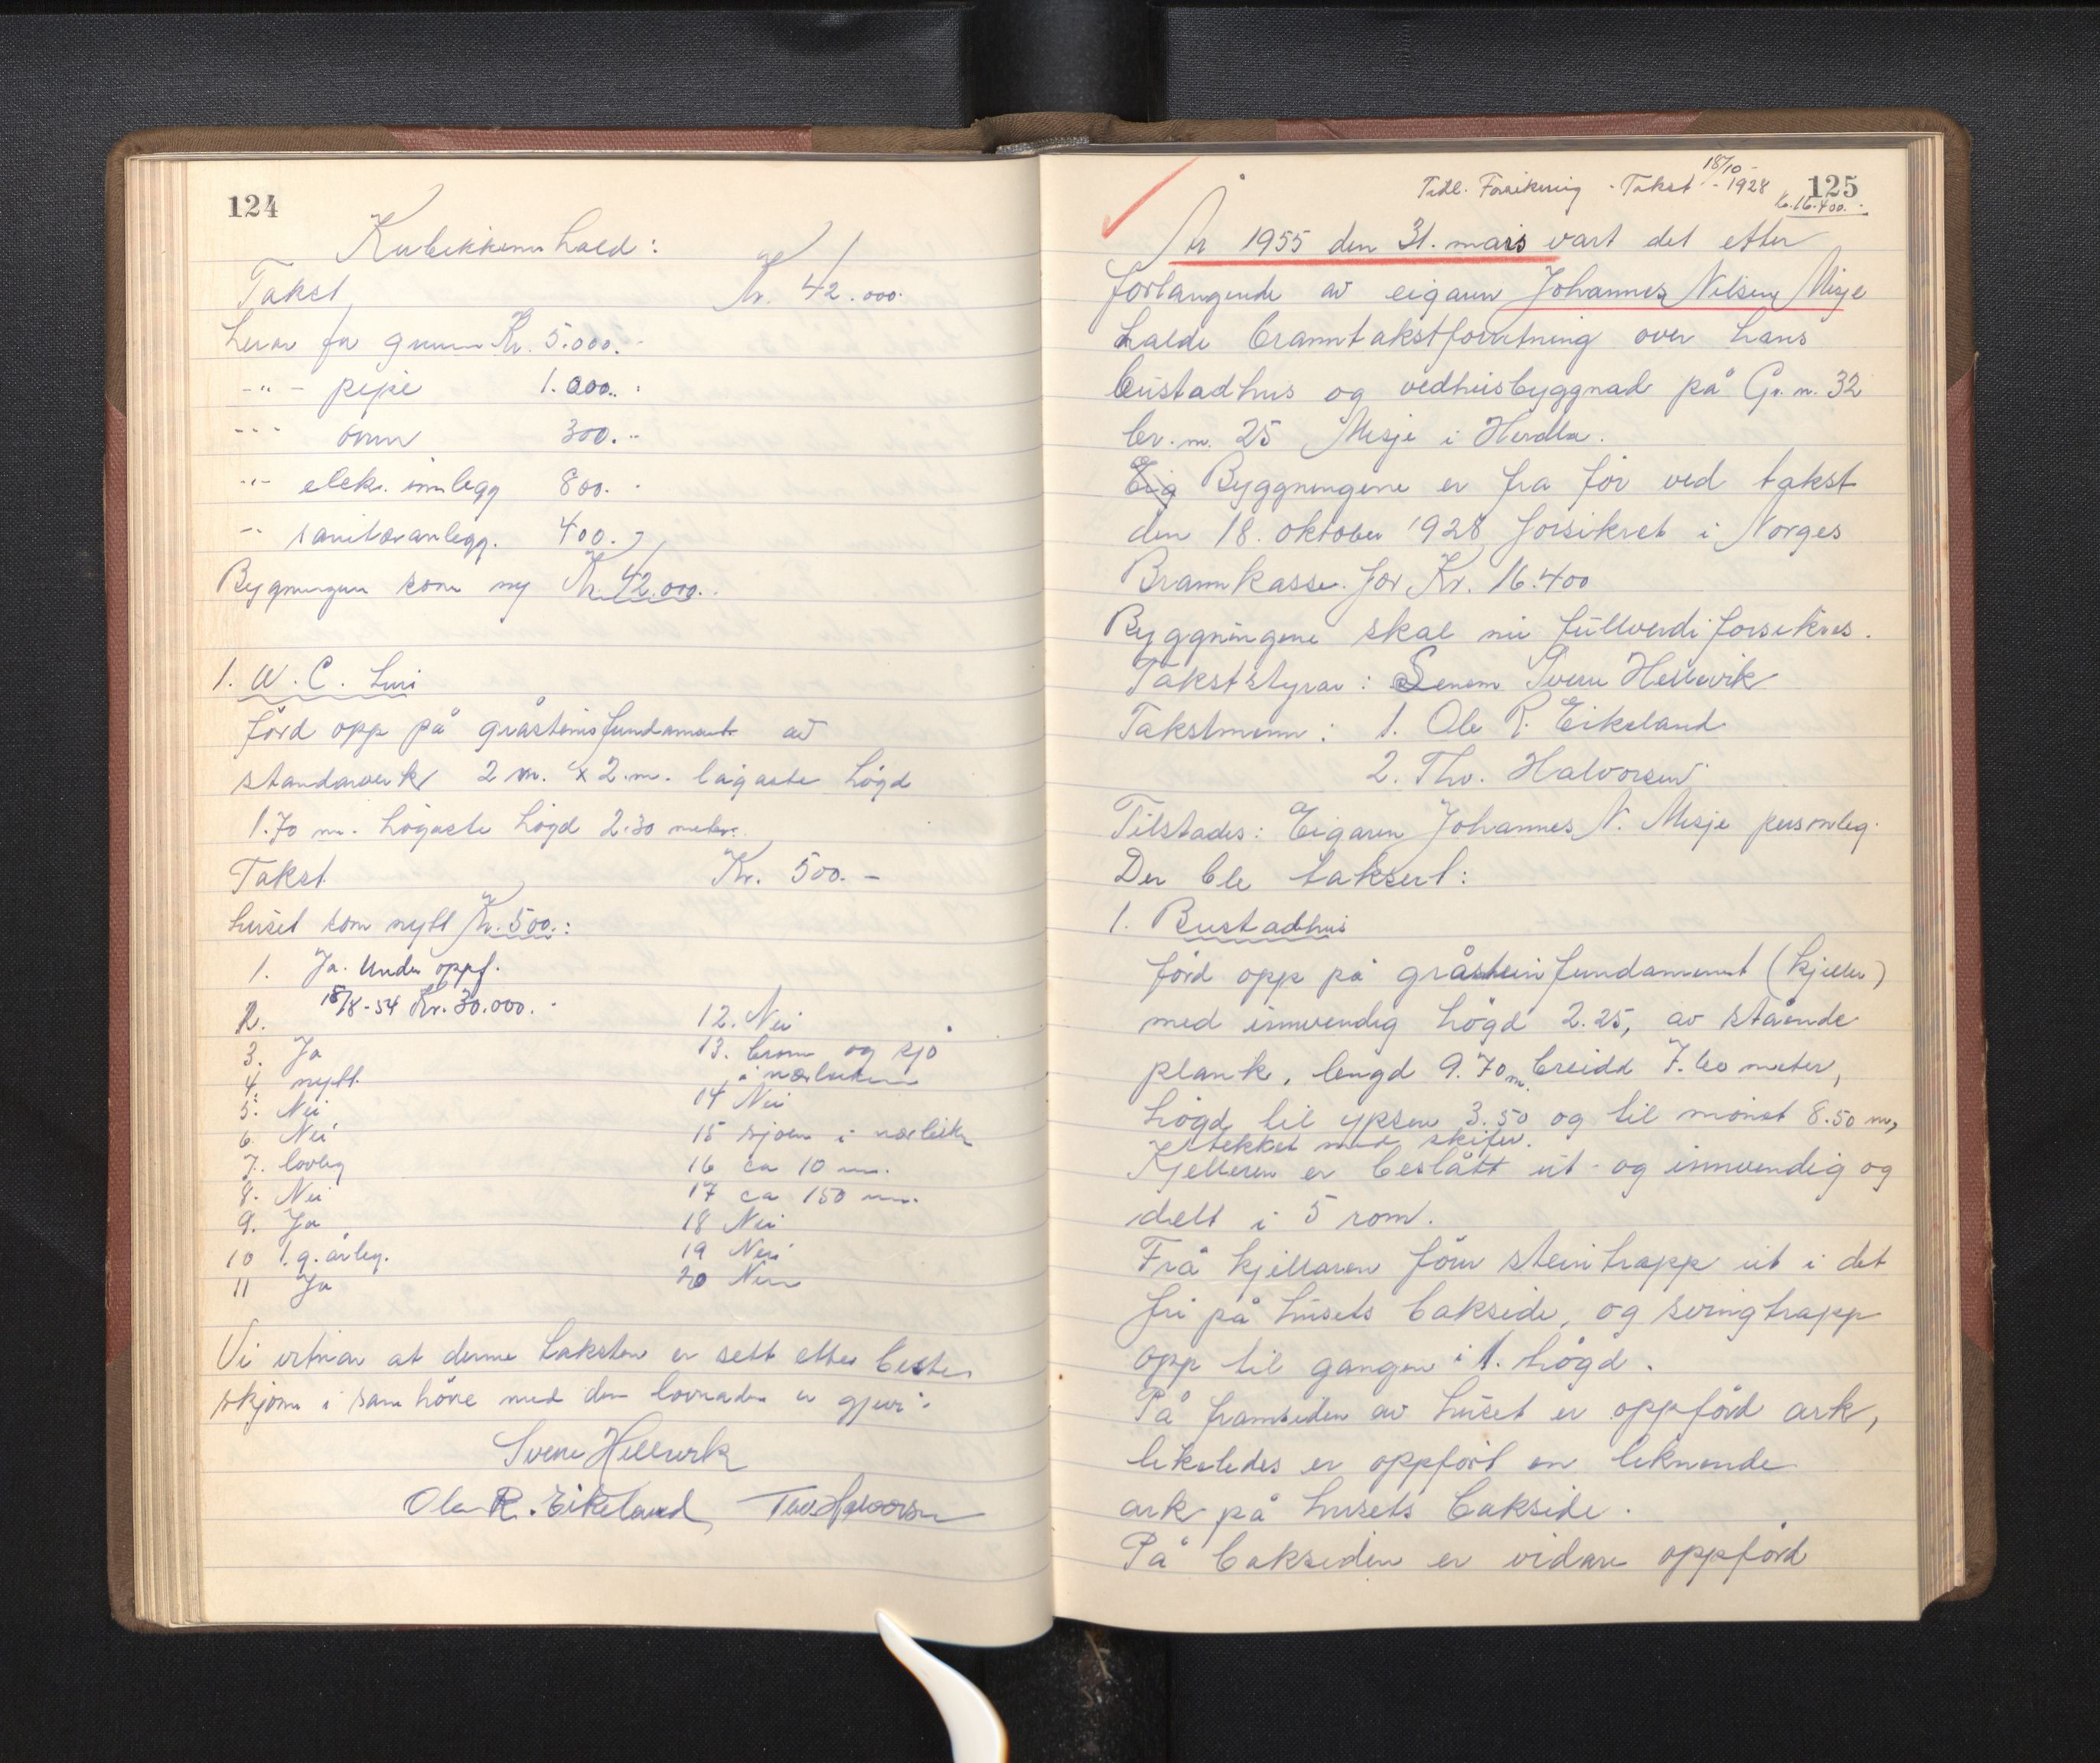 124
Kubikkinnhald:
Takst Kr. 42.000.-
herav for grunn Kr. 5.000.-
-"- pipe 1.000.-
-"- omn 300.-
-"- elek. innlegg 800.-
-"- sanitæranlegg. 400.-
Bygningen som ny Kr. 42.000.-
1. W.C. hus
förd opp på gråsteinsfundament av
standarverk 2 m. x 2.m. lågaste högd
1.70 m. högaste högd 2.30 meter.
Takst Kr. 500.-
huset som nytt Kr. 500.-
1. Ja. Under oppf.
2. 18/8-54 Kr. 30.000.-
3. Ja
4. nytt
5. Nei
6. Nei
7. lovleg
8. Nei
9. Ja
10 1.g. årleg.
11 Ja
12. Nei
13. brønn og sjö
i nærleiken
14 Nei
15 sjøen i nærleik
16 ca 10 m.
17 ca 150 m.
18 Nei
19 Nei
20 Nein
Vi vitnar at denne taksten er sett etter beste
skjönn i samhöve med den lovnaden er gjevi.
Sverre Hellevik
Ole R. Eikeland, Thv. Halvorsen
125
Tidl. Forsikring - Takst 18/10 - 1928
kr. 16.400.-
År 1955 den 31. mars vart det etter
forlangende av eigaren Johannes Nilsen Misje
halde branntakstforretning over hans
bustadhus og vedhusbyggnad på Gr. n. 32
br. n. 25 Misje i Herdla.
Eig Byggningene er fra før ved takst
den 18. oktober 1928 forsikret i Norges
Brannkasse for Kr. 16.400
Byggningene skal nu fullverdiforsikres.
Takststyrar: Lensm Sverre Hellevik
Takstmenn: 1. Ole R. Eikeland
2. Thv. Halvorsen
Tilstades: Eigaren Johannes N. Misje personleg.
Der ble taksert:
1. Bustadhus
förd opp på gråsteinfundament (kjeller)
med innvendig högd 2.25, av stående
plank, lengd 9.70 m. breidd 7.60 meter,
högd til ypsen 3.50 og til mönst 8.50 m,
tekket med skifer.
Kjelleren er beslått ut- og innvendig og
delt i 5 rom.
Frå kjellaren förer steintrapp ut i det
fri på husets bakside, og svingtrapp
opp til gangen i 1. högd.
På framsiden av huset er oppförd ark,
likeledes er oppfört en liknende
ark på husets bakside.
På baksiden er vidare oppförd